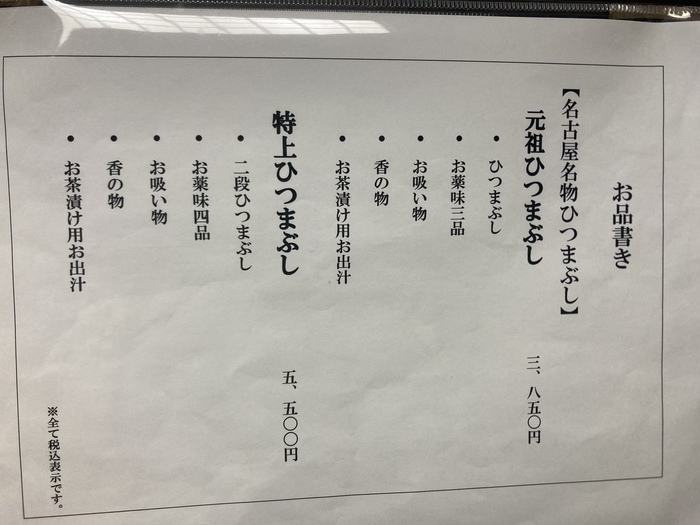 お品書き
【名古屋名物ひつまぶし】
元祖ひつまぶし 三、八五〇円
• ひつまぶし
• お薬味三品
• お吸い物
• 香の物
• お茶漬け用お出汁
特上ひつまぶし 五、五〇〇円
• 二段ひつまぶし
• お薬味四品
• お吸い物
• 香の物
• お茶漬け用お出汁
※全て税込表示です。